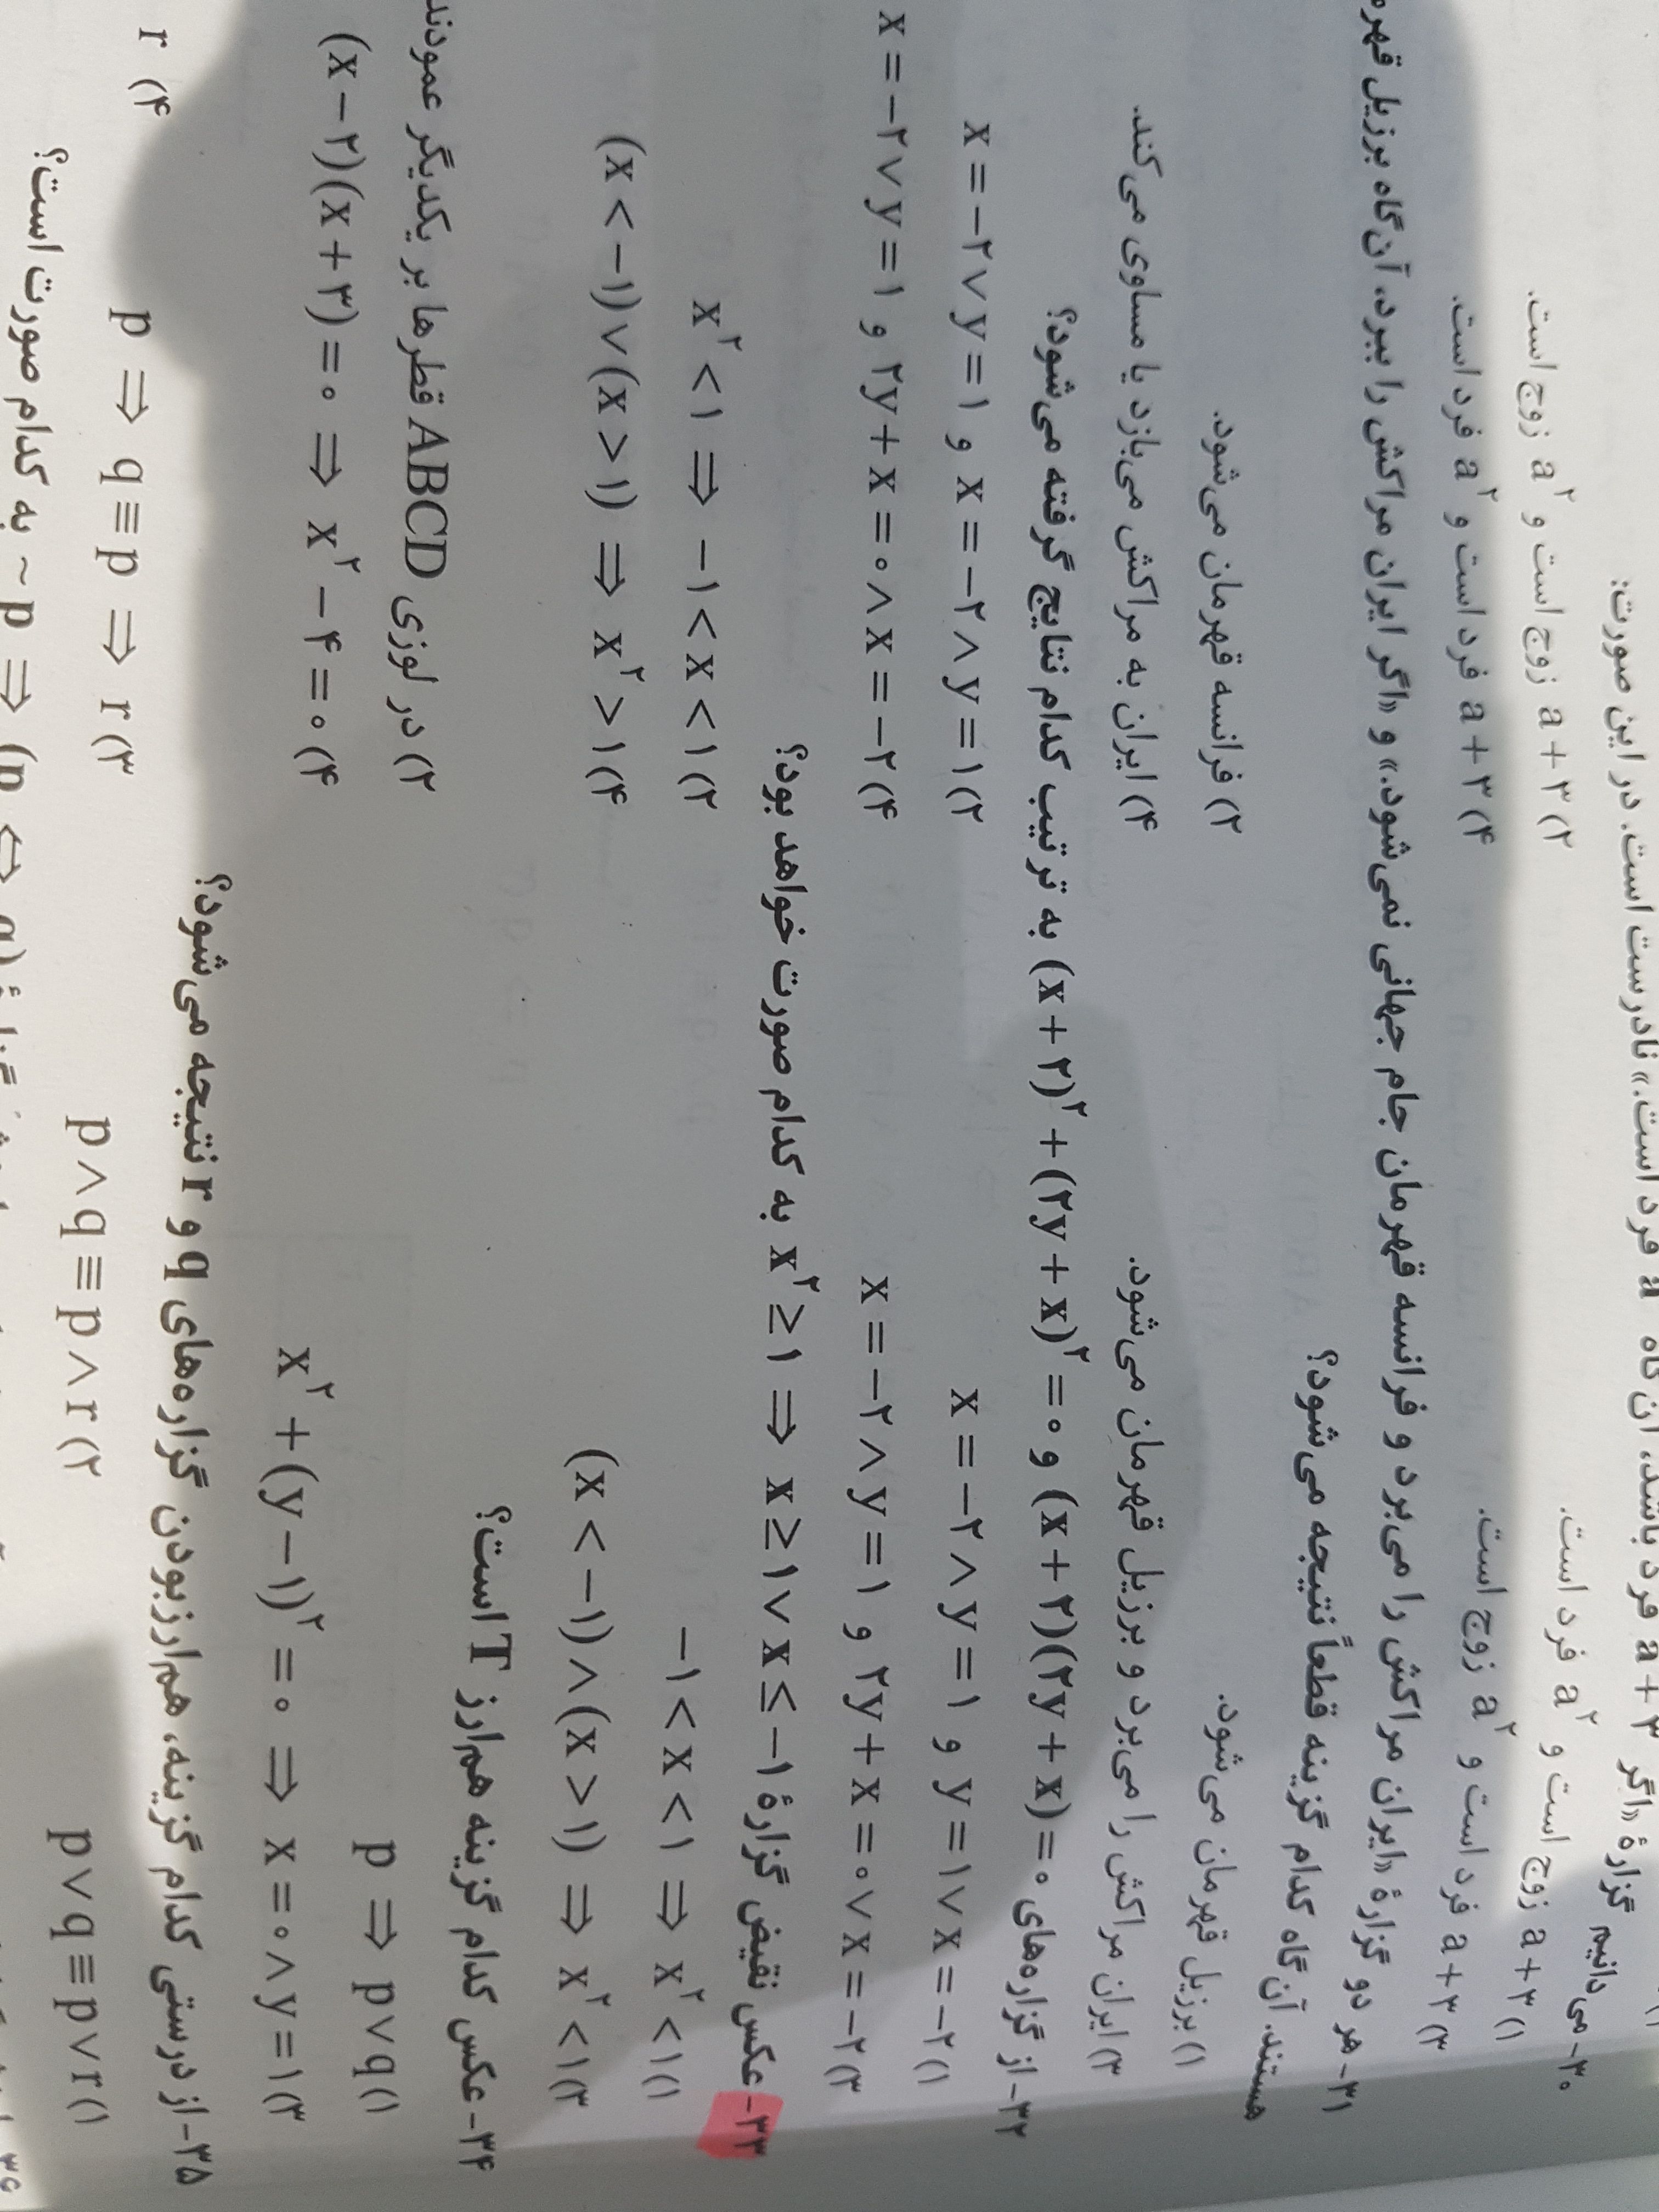 ۳۰- می‌دانیم گزارهٔ «اگر a + ۳ فرد باشد، آن گاه a فرد است.» نادرست است. در این صورت:
۱) a + ۳ زوج است و a² فرد است. ۲) a + ۳ زوج است و a² زوج است.
۳) a + ۳ فرد است و a² زوج است. ۴) a + ۳ فرد است و a² فرد است.
۳۱- هر دو گزارهٔ «ایران مراکش را می‌برد و فرانسه قهرمان جام جهانی نمی‌شود.» و «اگر ایران مراکش را ببرد، آن‌گاه برزیل
هستند. آن گاه کدام گزینه قطعاً نتیجه می‌شود؟
۱) برزیل قهرمان می‌شود. ۲) فرانسه قهرمان می‌شود.
۳) ایران مراکش را می‌برد و برزیل قهرمان می‌شود. ۴) ایران به مراکش می‌بازد یا مساوی می‌کند.
۳۲- از گزاره‌های (x + ۲)(۲y + x) = ۰ و (x + ۲)² + (۲y + x)² = ۰ به ترتیب کدام نتایج گرفته می‌شود؟
۱) x = −۲ ∧ y = ۱ و y = ۱ ∨ x = −۲ ۲) x = −۲ ∨ y = ۱ و x = −۲ ∧ y = ۱
۳) x = −۲ ∧ y = ۱ و ۲y + x = ۰ ∨ x = −۲ ۴) x = −۲ ∨ y = ۱ و ۲y + x = ۰ ∧ x = −۲
۳۳- عکس نقیض گزارهٔ x² ≥ ۱ ⇒ x ≥ ۱ ∨ x ≤ −۱ به کدام صورت خواهد بود؟
۱) −۱ < x < ۱ ⇒ x² < ۱ ۲) x² < ۱ ⇒ −۱ < x < ۱
۳) (x < −۱) ∧ (x > ۱) ⇒ x² < ۱ ۴) (x < −۱) ∨ (x > ۱) ⇒ x² > ۱
۳۴- عکس کدام گزینه هم‌ارز T است؟
۱) p ⇒ p ∨ q ۲) در لوزی ABCD قطرها بر یکدیگر عمودند
۳) x² + (y − ۱)² = ۰ ⇒ x = ۰ ∧ y = ۱ ۴) (x − ۲)(x + ۳) = ۰ ⇒ x² − ۴ = ۰
۳۵- از درستی کدام گزینه، هم‌ارز بودن گزاره‌های q و r نتیجه می‌شود؟
۱) p ∨ q ≡ p ∨ r ۲) p ∧ q ≡ p ∧ r ۳) p ⇒ q ≡ p ⇒ r ۴) r
~ p ⇒ (p ⇔ q) به کدام صورت است؟